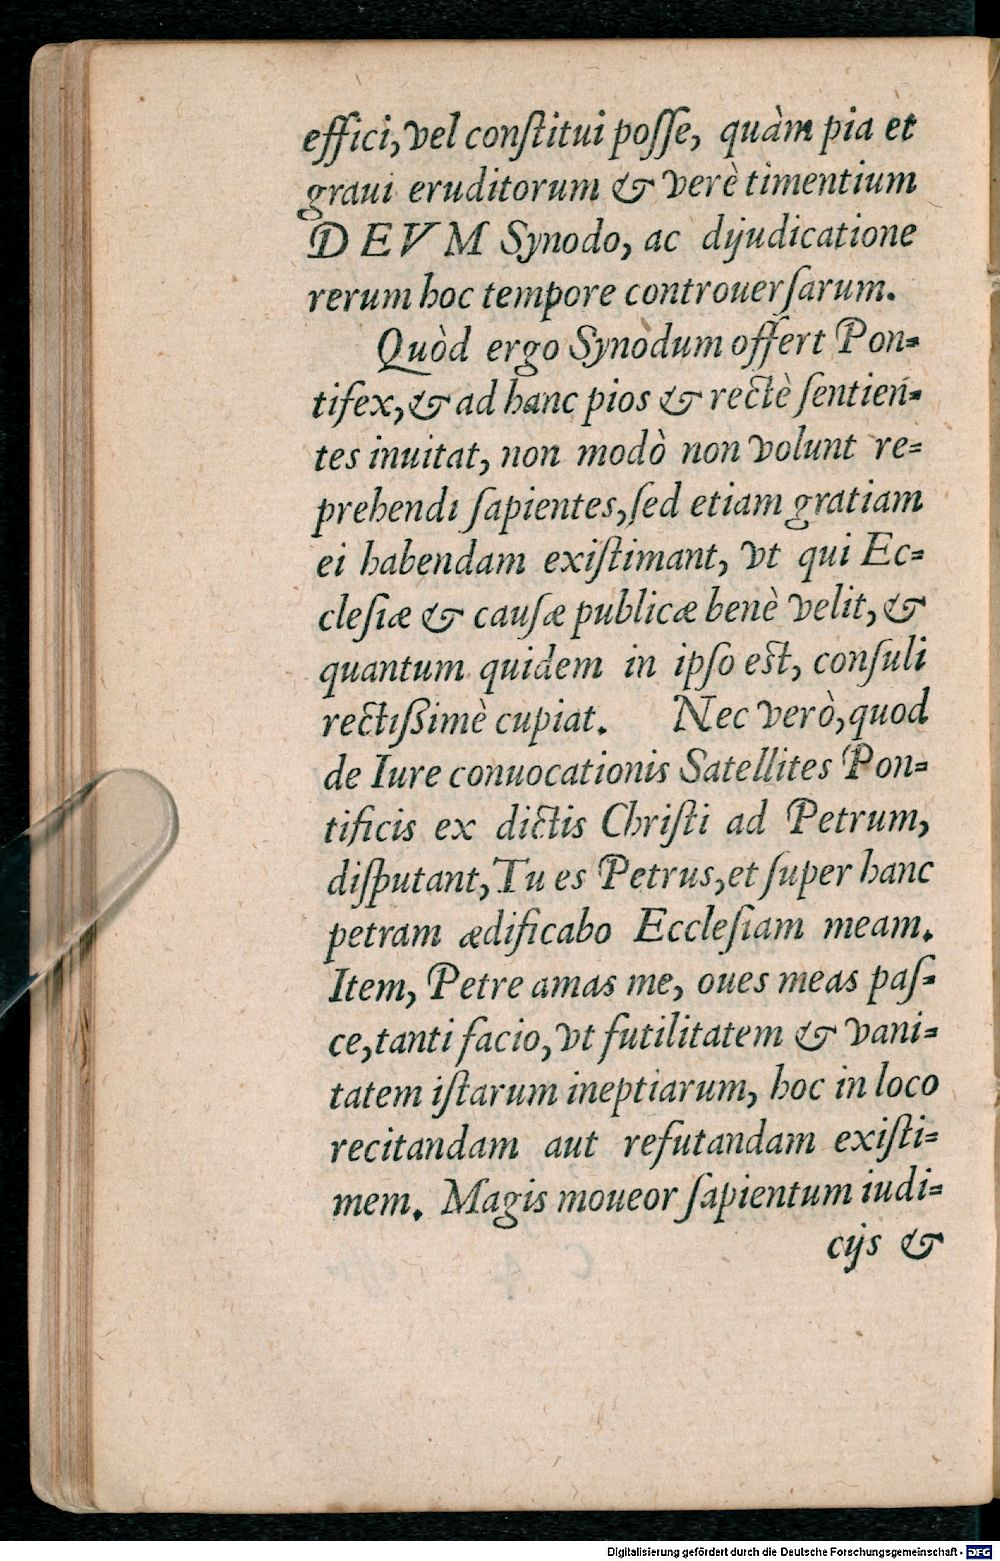 effici, vel conſtitui poſſe, quàm pia et
graui eruditorum & verè timentium
DEVM Synodo, ac dijudicatione
rerum hoc tempore controuerſarum.
Quòd ergo Synòdum offert Pon=
tifex, & ad hanc pios & rectè ſentien=
tes inuitat, non modò non volunt re=
prehendi ſapientes, ſed etiam gratiam
ei habendam exiſtimant, vt qui Ec=
cleſiæ & cauſæ publicæ benè velit, &
quantum quidem in ipſo est, conſuli
rectißimè cupiat. Nec verò, quod
de Iure conuocationis Satellites Pon=
tificis ex dictis Chriſti ad Petrum,
diſputant, Tu es Petrus, et ſuper hanc
petram ædificabo Eccleſiam meam.
Item, Petre amas me, oues meas paſ=
ce, tanti facio, vt futilitatem & vani=
tatem iſtarum ineptiarum, hoc in loco
recitandam aut refutandam exiſti=
mem. Magis moueor ſapientum iudi=
cijs &
Digitalisierung gefördert durch die Deutsche Forschungsgemeinschaft - DFG